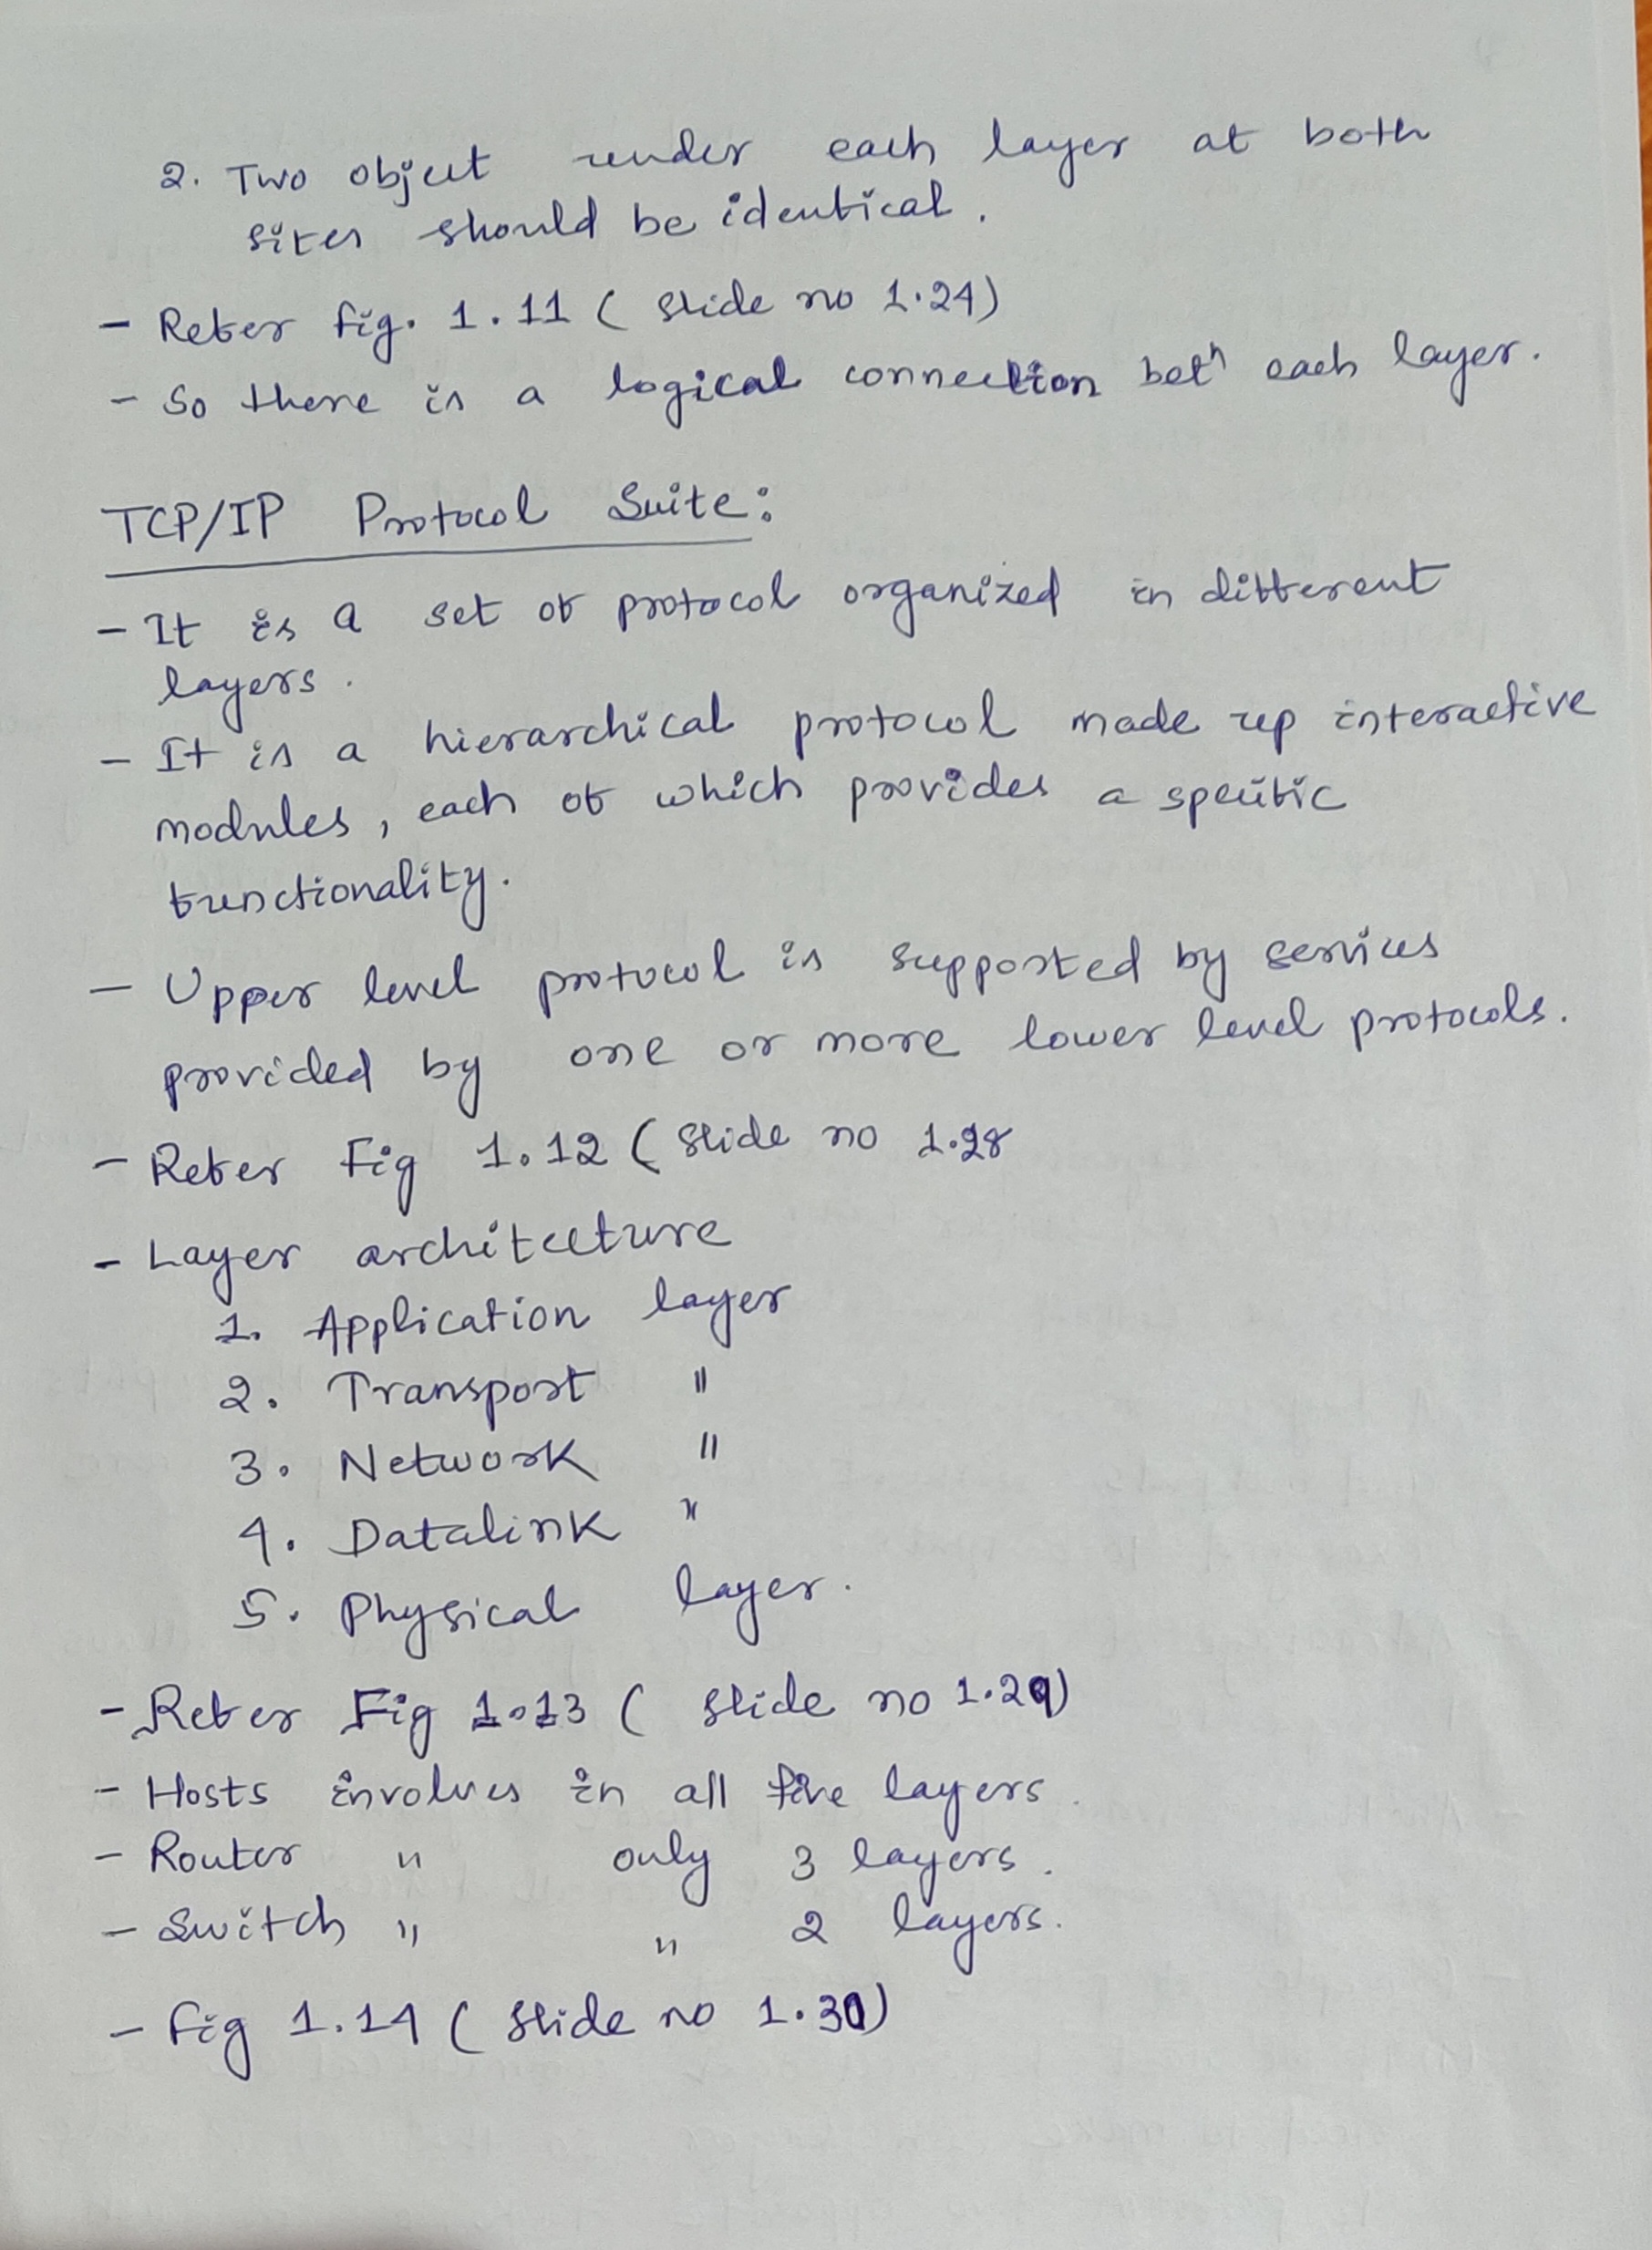 2. Two object under each layer at both
sites should be identical.
- Refer fig. 1.11 ( slide no 1.24)
- So there is a logical connection betn each layer.
TCP/IP Protocol Suite:
- It is a set of protocol organized in different
layers.
- It is a hierarchical protocol made up interactive
modules, each of which provides a specific
functionality.
- Upper level protocol is supported by services
provided by one or more lower level protocols.
- Refer Fig 1.12 ( slide no 1.28
- Layer architecture
1. Application layer
2. Transport "
3. Network "
4. Datalink "
5. Physical layer.
- Refer Fig 1.13 ( slide no 1.29)
- Hosts involves in all five layers.
- Router " only 3 layers.
- Switch " " 2 layers.
- Fig 1.14 ( slide no 1.30)